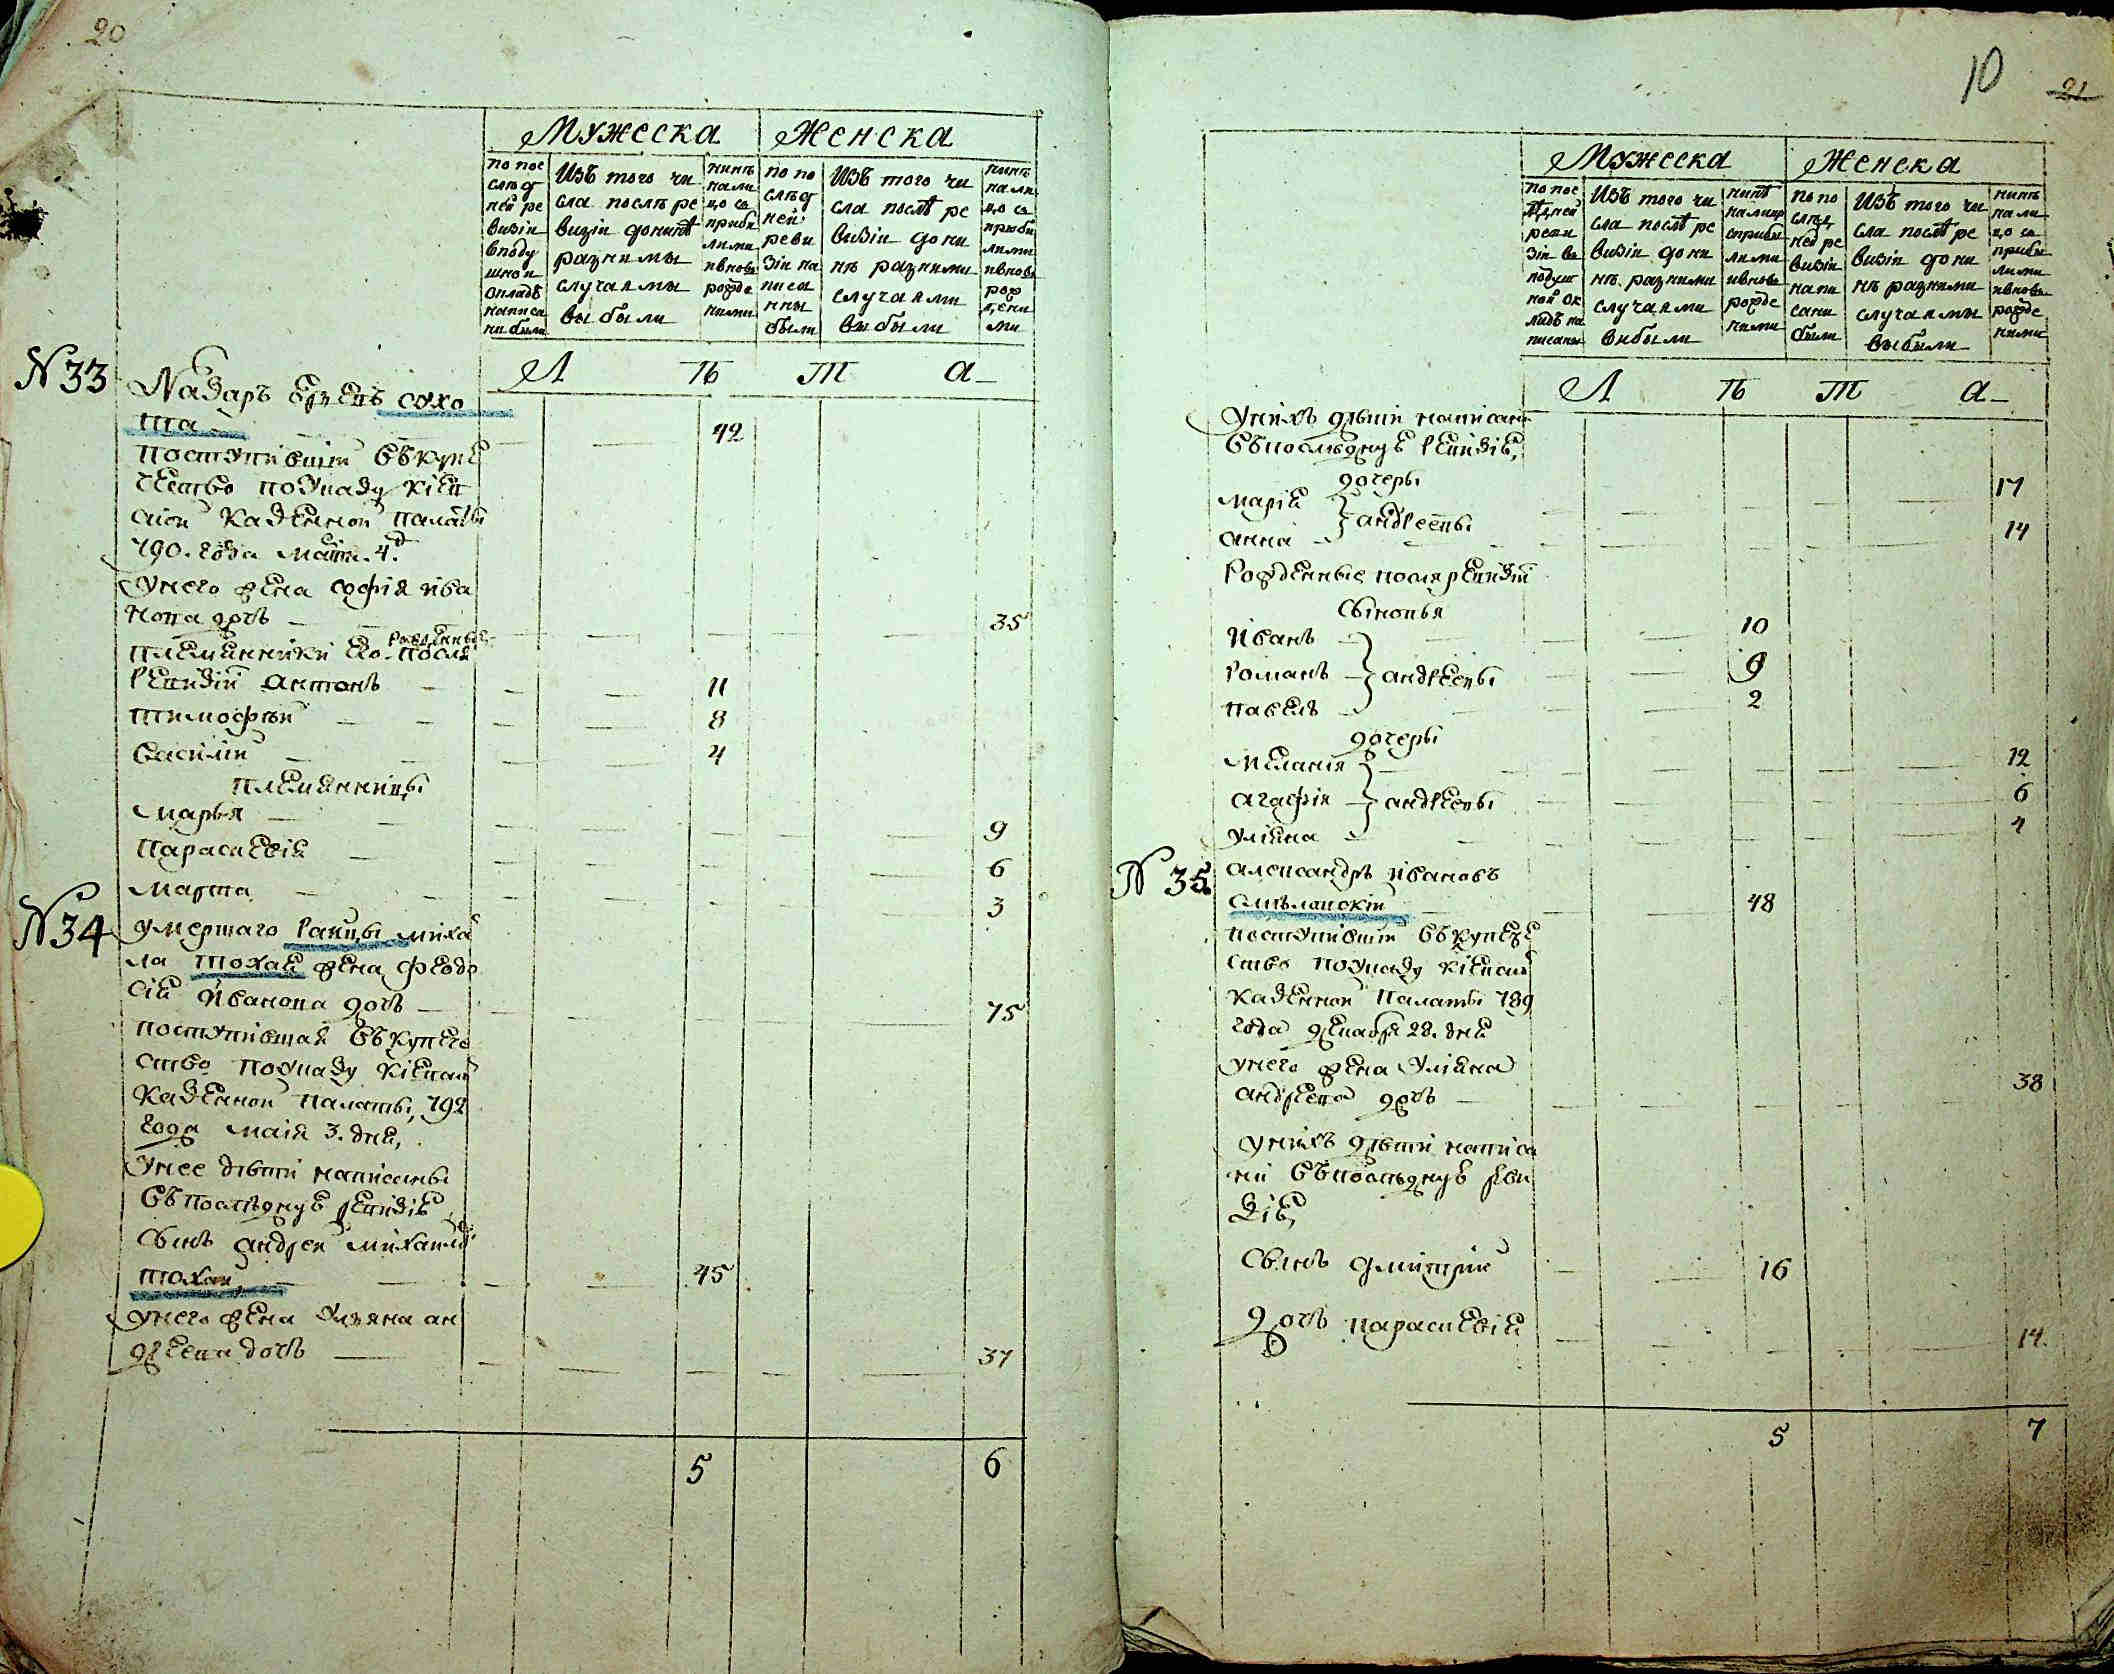 20
Мужеска Женска
по пос
слѣд
ней ре
визіи
вподу
шной
окладъ
написа
ни были
Изъ того чи
сла послѣ ре
визіи донинѣ
разними
случаями
выбыли
нинѣ
нали
цо съ
прибы
лими
ивновь
рожде
ними
по по
слѣд
ней
реви
зіи на
писа
нны
были
Изъ того чи
сла послѣ ре
визіи дони
нѣ разними
случаями
выбыли
нинѣ
нали
цо съ
прибы
лими
ивновь
рож
дени
ми
Л Ѣ Т а
№ 33
Назаръ Еремѣевъ сохо
та 42
поступившій въ купе
чество поуказу кіев
ской казенной палаты
790. года маія. 4.
Унего жена софія ива
нова дочь 35
племянники его рожденные после
ревизіи антонъ 11
тимофѣй 8
василій 4
племянницы
марья 9
параскевія 6
марфа 3
№ 34
умершаго райцы миха
ла тохаи жена феодо
сія иванова дочь 75
поступившая въ купече
ство поуказу кіевской
казенной палаты, 792
года маія 3. дня,
Унее дѣти написаны
въ послѣднуе ревизіе
сынъ андрей михайлов
тохай, 45
унего жена ульяна ан
дреева дочь 37
5 6
10
21
Мужеска Женска
по пос
лѣдней
реви
зіи въ
подуш
ной ок
ладъ на
писаны
Изъ того чи
сла послѣ ре
визіи дони
нѣ разними
случаями
вибыли
нинѣ
налицо
сприбы
лими
ивновь
рожде
ними
по по
слѣд
ней ре
визіи
напи
сани
были
Изъ того чи
сла послѣ ре
визіи дони
нѣ разними
случаями
выбыли
нинѣ
нали
цо съ
прибы
лими
ивновь
рожде
ними
Л Ѣ Т а
Унихъ дѣти написани
въ послѣднуе ревизіе,
дочеры
марія андреевы 17
анна 14
рожденные после ревизіи
сыновья
иванъ 10
романъ андреевы 9
павелъ 2
дочеры
меланія 12
агафія андреевы 6
уліяна 4
№ 35
александръ ивановъ
смѣлянскій 48
поступившій въ купече
ство поуказу кіевской
казенной палаты 789
года декабря 28. дня
унего жена уліяна
андреева дочь 38
унихъ дѣти написа
ни въ послѣднуе реви
зіе,
сынъ дмитрій 16
дочь параскевія 14.
5 7